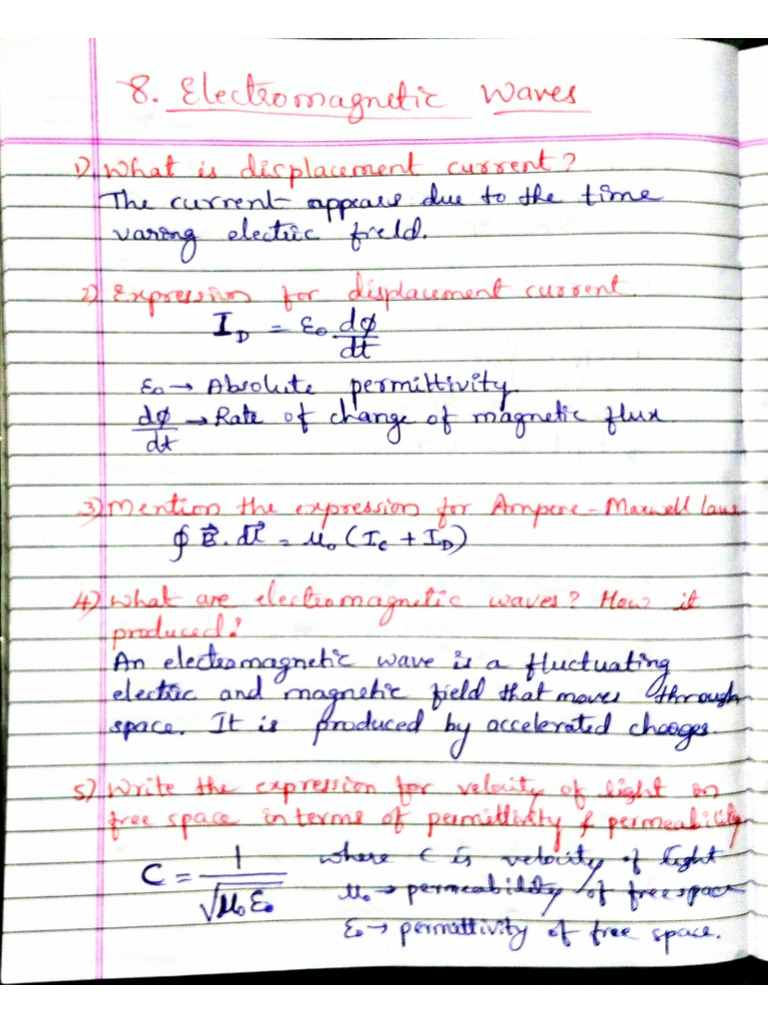 8. Electromagnetic Waves
1) What is displacement current?
The current appears due to the time
varing electric field.
2) Expression for displacement current
I_D = ε₀ dφ/dt
ε₀ → Absolute permittivity
dφ/dt → Rate of change of magnetic flux
3) Mention the expression for Ampere-Maxwell law
∮ B⃗. dl⃗ = μ₀ (I_C + I_D)
4) What are electromagnetic waves? How it
produced?
An electromagnetic wave is a fluctuating
electric and magnetic field that moves through
space. It is produced by accelerated charges.
5) Write the expression for velocity of light in
free space in terms of permittivity & permeability
C = 1/√μ₀ε₀ where C is velocity of light
μ₀ → permeability of free space
ε₀ → permittivity of free space.